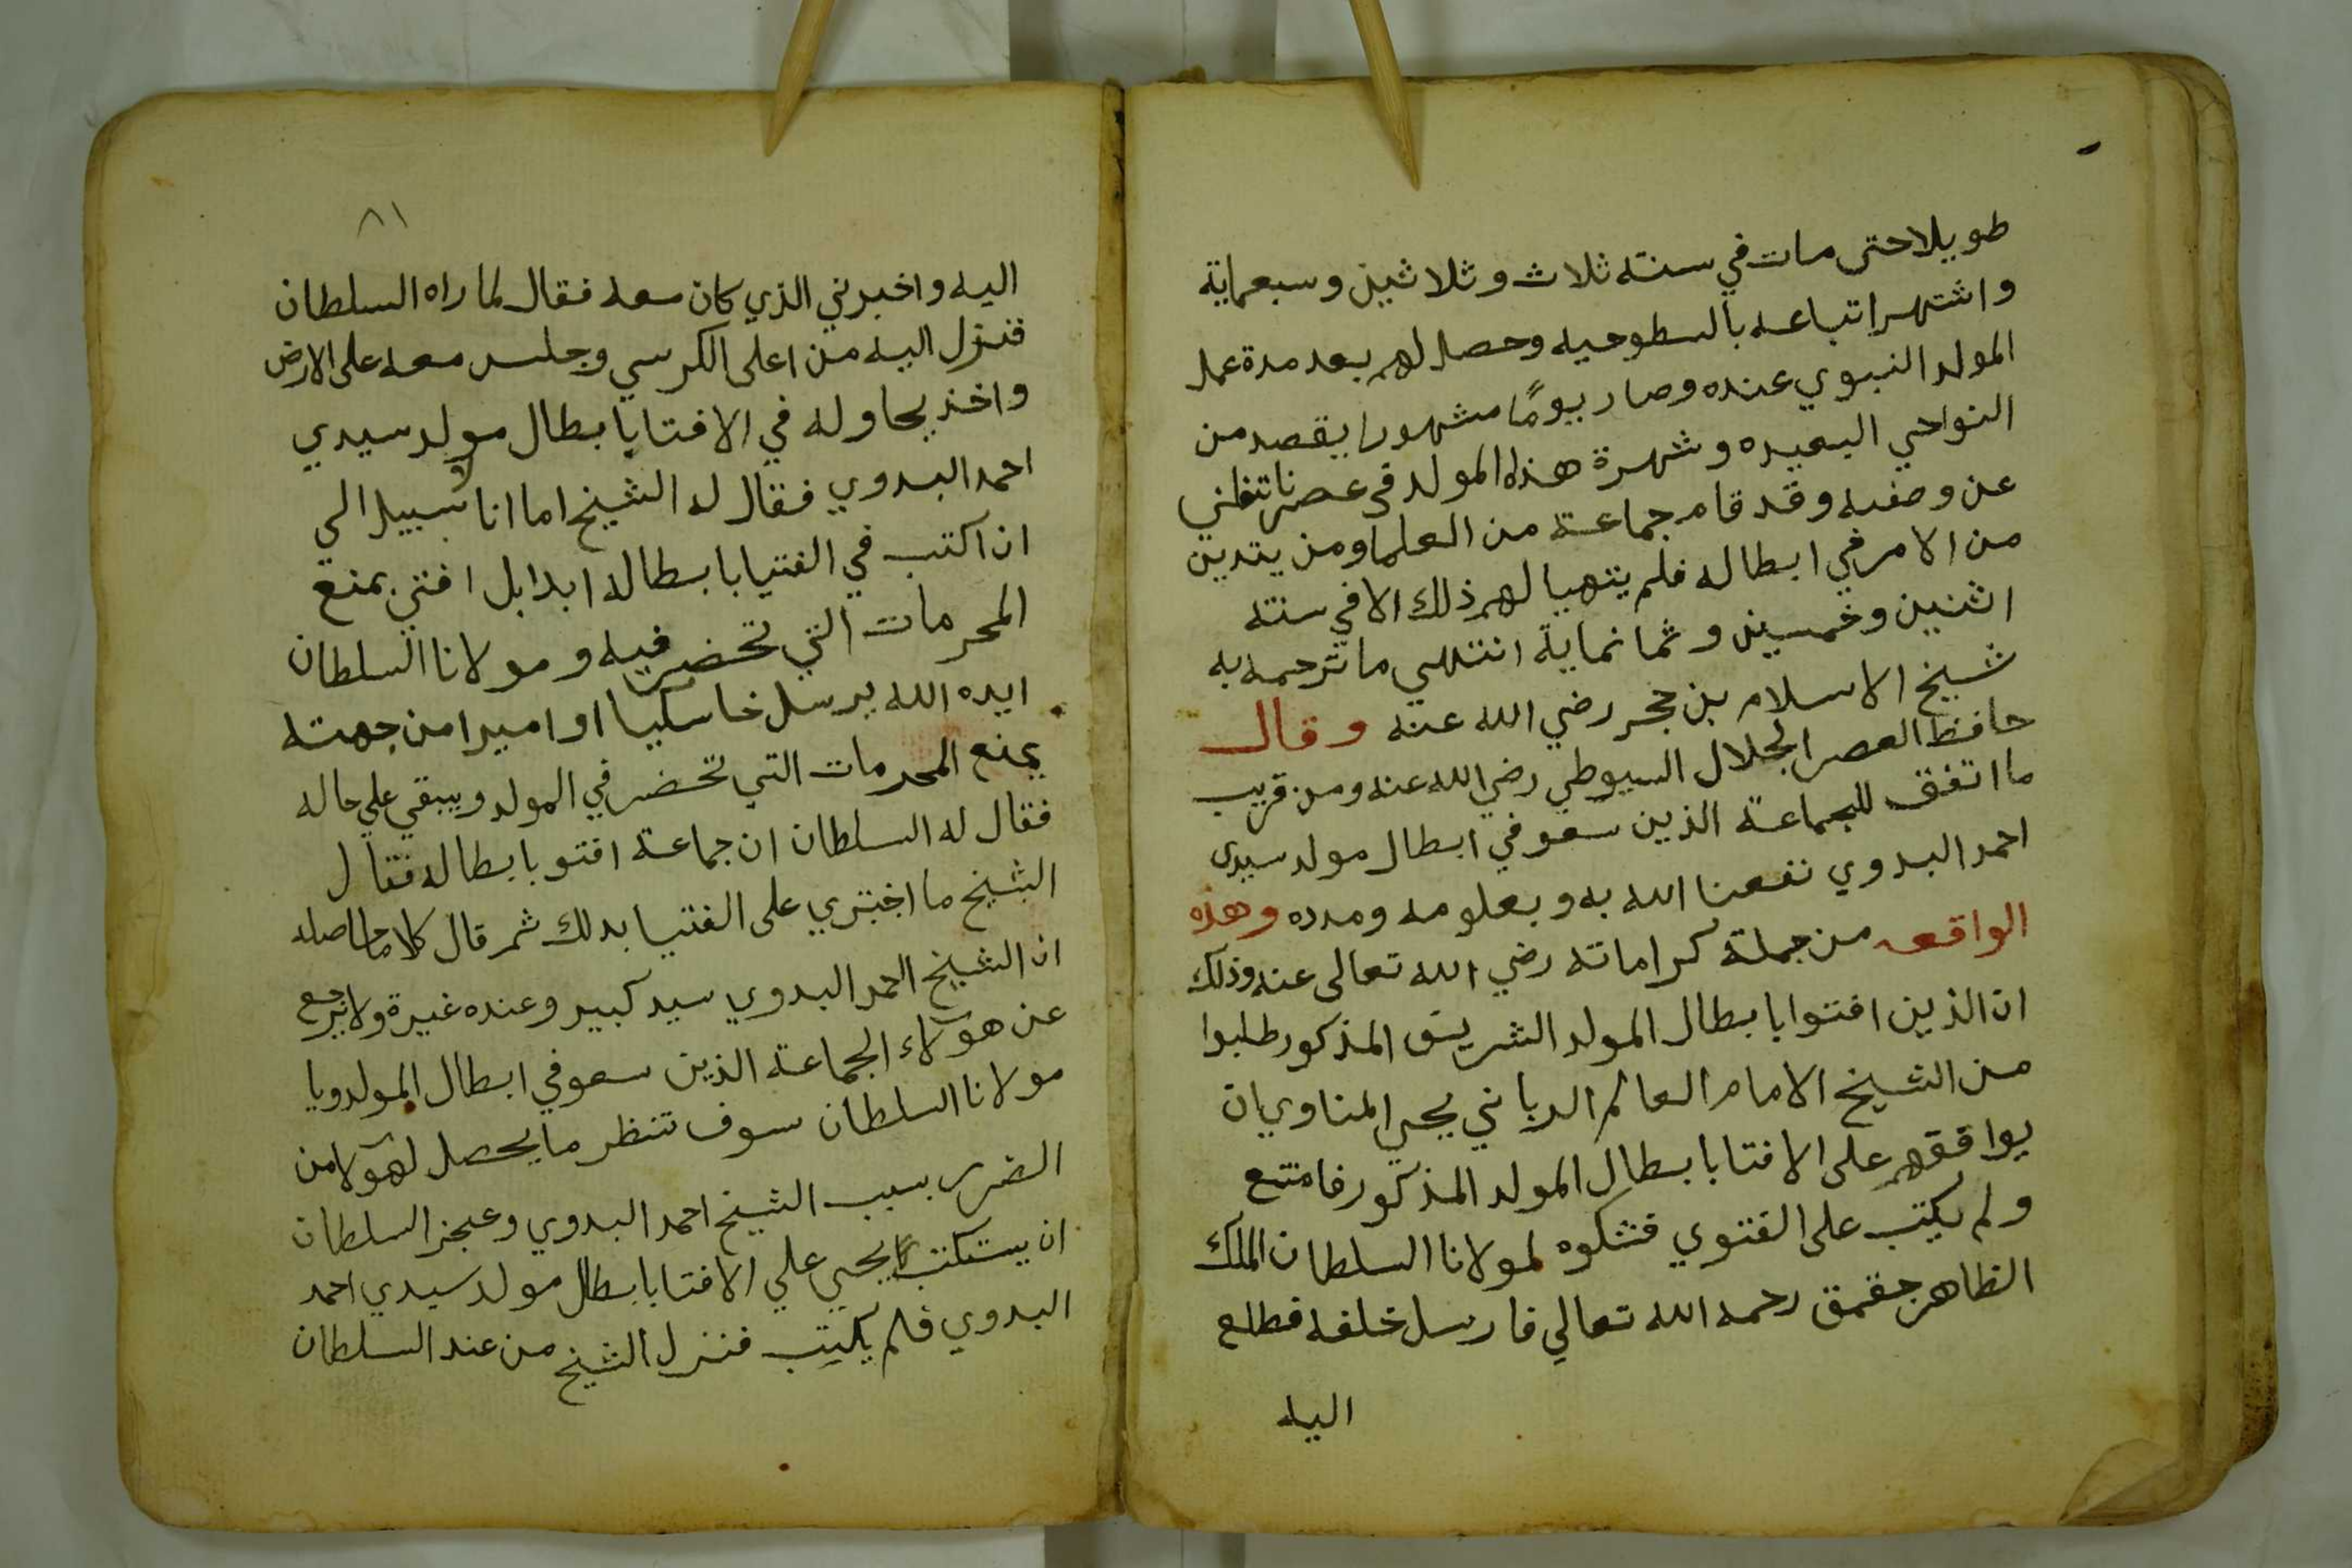 طويلا حتى مات في سنته ثلاث وثلاثين وسبعماية
واشتهر اتباعه بالسطوحيه وحصل لهم بعد مدة عمل
المولد النبوي عنده وصار يومًا مشهورا يقصد من
النواحي البعيده وشهرة هذا المولد في عصرنا تغني
عن وصفه وقد قام جماعة من العلما ومن يتدين
من الامر في ابطاله فلم يتهيا لهم ذلك الا في سنته
اثنين وخمسين وثمانماية انتهي ما ترجمه به
شيخ الاسلام بن حجر رضي الله عنه وقال
حافظ العصر الجلال السيوطي رضي الله عنه ومن قريب
ما اتفق للجماعة الذين سعو في ابطال مولد سيدى
احمد البدوي نفعنا الله به وبعلومه ومدده وهذه
الواقعه من جملة كراماته رضي الله تعالى عنه وذلك
ان الذين افتوا بابطال المولد الشريف المذكور طلبوا
من الشيخ الامام العالم الرباني يحيي المناوي ان
يوافقهم على الافتا بابطال المولد المذكور فامتنع
ولم يكتب على الفتوي فشكوه لمولانا السلطان الملك
الظاهر جقمق رحمه الله تعالي فارسل خلفه فطلع
اليه
٨١
اليه واخبرني الذي كان معه فقال لما راه السلطان
فنزل اليه من اعلى الكرسي وجلس معه على الارض
واخذ يحاوله في الافتا بابطال مولد سيدي
احمد البدوي فقال له الشيخ اما انا لا سبيل الي
ان اكتب في الفتيا بابطاله ابدا بل افتي بمنع
المحرمات التي تحضر فيه ومولانا السلطان
ايده الله يرسل خاسكيا او اميرا من جهته
يمنع المحرمات التي تحضر في المولد ويبقي علي حاله
فقال له السلطان ان جماعة افتو بابطاله فقال
الشيخ ما اجتري على الفتيا بدلك ثم قال كلاما حاصله
ان الشيخ احمد البدوي سيد كبير وعنده غيرة ولا يرجع
عن هولاء الجماعة الذين سعو في ابطال المولد ويا
مولانا السلطان سوف تنظر ما يحصل لهولا من
الضرر بسبب الشيخ احمد البدوي وعجز السلطان
ان يستكتب يحيي علي الافتا بابطال مولد سيدي احمد
البدوي فلم يكتب فنزل الشيخ من عند السلطان